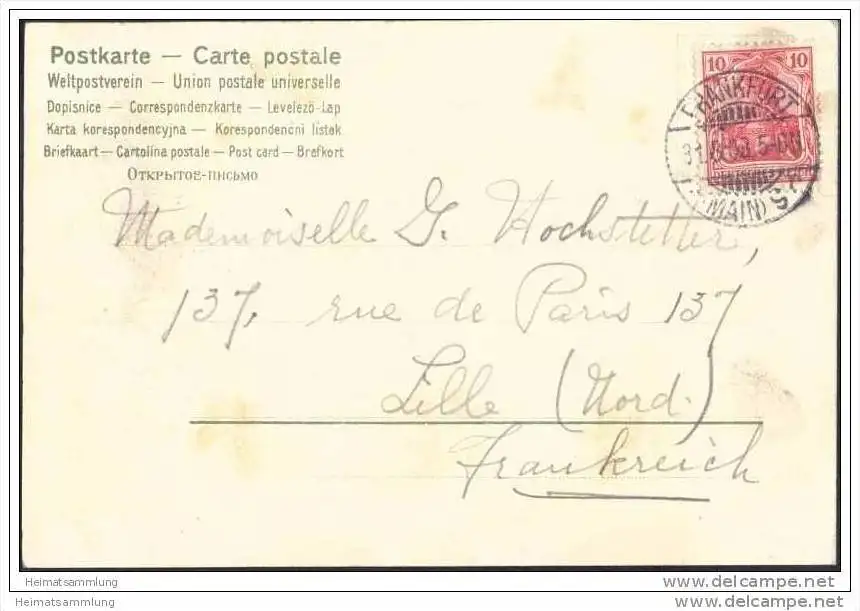 Postkarte — Carte postale
Weltpostverein — Union postale universelle
Dopisnice — Correspondenzkarte — Levelező-Lap
Karta korespondencyjna — Korespondenčni listek
Briefkaart — Cartolina postale — Post card — Brefkort
Открытое-письмо
10 10
FRANKFURT
(MAIN)
Mademoiselle G. Hochstetter,
137, rue de Paris 137
Lille (Nord)
Frankreich
Heimatsammlung
Heimatsammlung
www.delcampe.net
www.delcampe.net